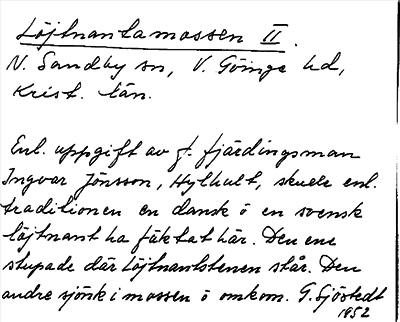 Löjtnantamossen II.
N. Sandby sn, V. Göinge hd,
Krist. län.
Enl. uppgift av f. fjärdingsman
Ingvar Jönsson, Hylhult, skulle enl.
traditionen en dansk o en svensk
löjtnant ha fäktat här. Den ene
stupade där Löjtnantstenen står. Den
andre sjönk i mossen o omkom. G. Sjöstedt
1952